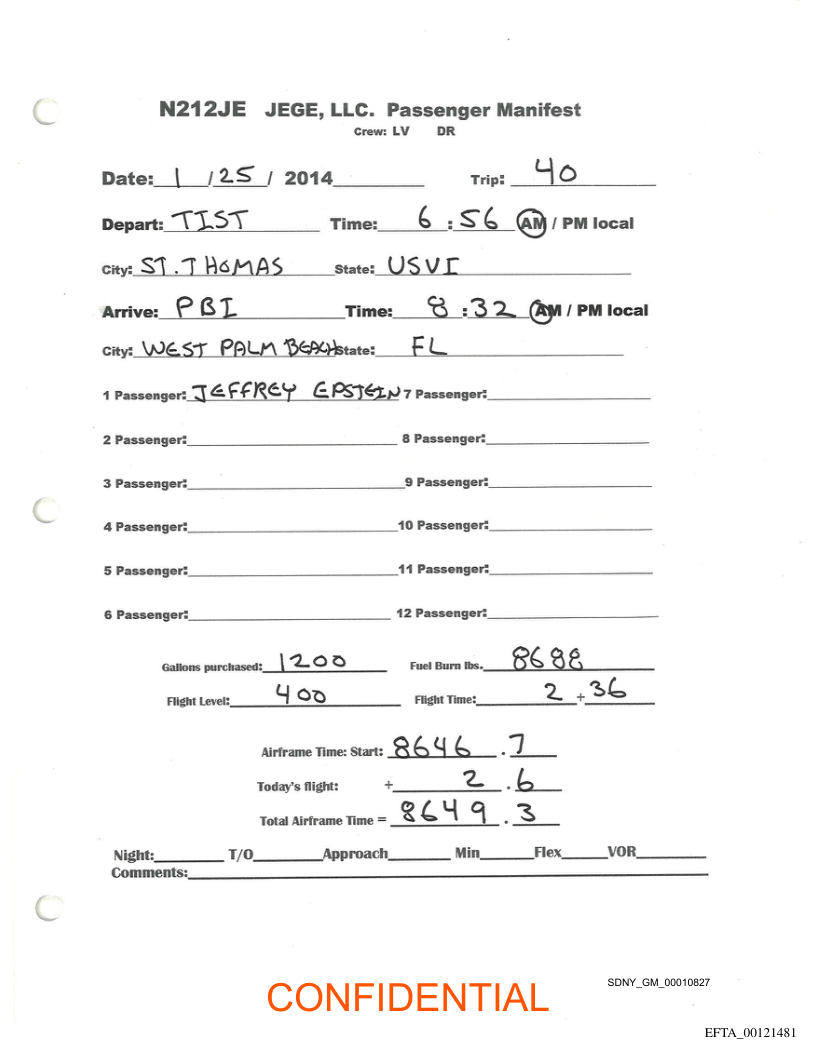 N212JE JEGE, LLC. Passenger Manifest
Crew: LV DR
Date: 1 / 25 / 2014 Trip: 40
Depart: TIST Time: 6 : 56 AM / PM local
City: ST. THOMAS State: USVI
Arrive: PBI Time: 8 : 32 AM / PM local
City: WEST PALM BEACH State: FL
1 Passenger: JEFFREY EPSTEIN 7 Passenger:
2 Passenger: 8 Passenger:
3 Passenger: 9 Passenger:
4 Passenger: 10 Passenger:
5 Passenger: 11 Passenger:
6 Passenger: 12 Passenger:
Gallons purchased: 1200 Fuel Burn lbs. 8688
Flight Level: 400 Flight Time: 2 + 36
Airframe Time: Start: 8646 . 7
Today's flight: + 2 . 6
Total Airframe Time = 8649 . 3
Night: T/O Approach Min Flex VOR
Comments:
CONFIDENTIAL
SDNY_GM_00010827
EFTA_00121481